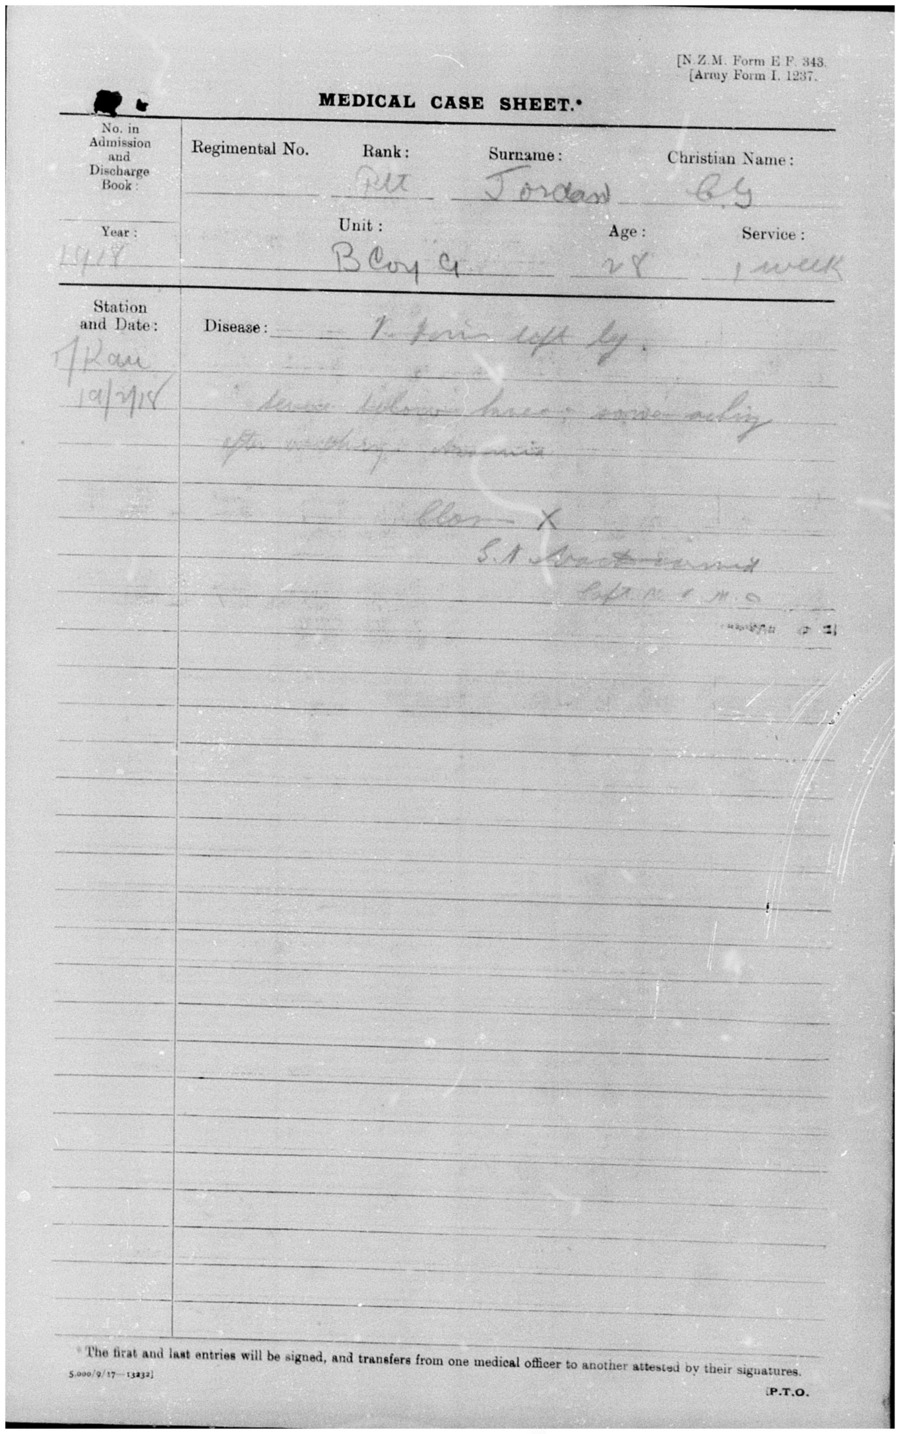 [N.Z.M. Form E F. 343.
[Army Form I. 1237.
MEDICAL CASE SHEET.*
No. in
Admission
and
Discharge
Book:
Regimental No.
Rank:
Surname:
Christian Name:
Pte
Jordan
C.G
Year:
Unit:
Age:
Service:
1918
B Coy G
28
1 week
Station
and Date:
Disease:
V. Veins left leg.
T/Kau
19/2/18
below knee; some aching
after
Class X
S. A
Capt N Z M.C
* The first and last entries will be signed, and transfers from one medical officer to another attested by their signatures.
5,000/9/17—13232]
[P.T.O.